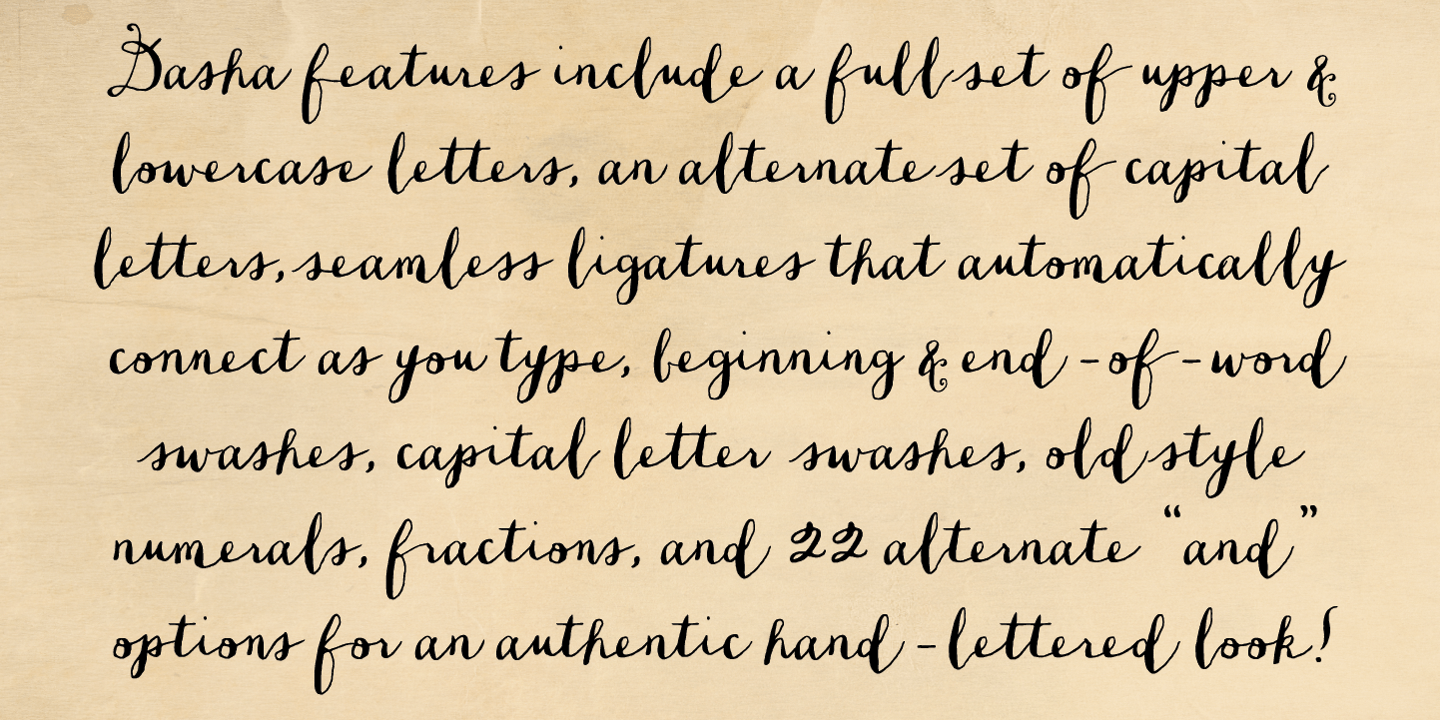 Dasha features include a full set of upper &
lowercase letters, an alternate set of capital
letters, seamless ligatures that automatically
connect as you type, beginning & end-of-word
swashes, capital letter swashes, old style
numerals, fractions, and 22 alternate “and”
options for an authentic hand-lettered look!